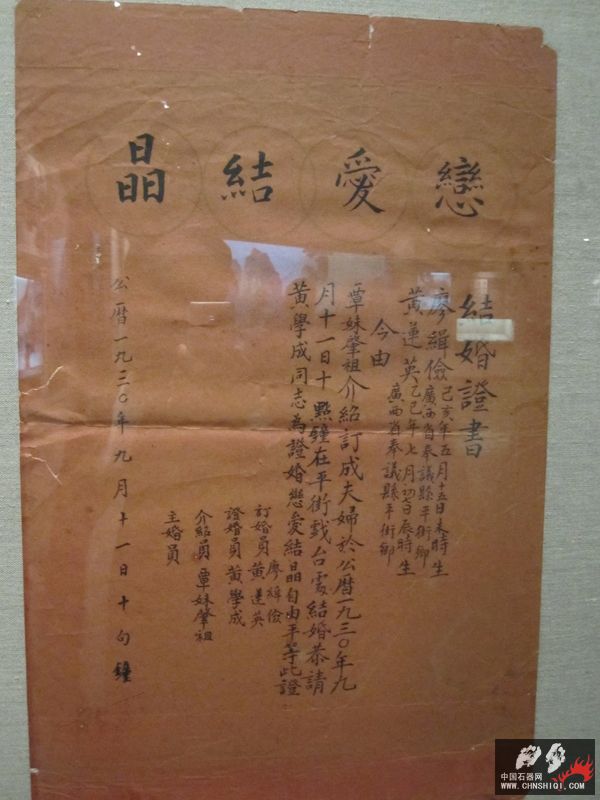 戀愛結晶
結婚證書
廖緝儉 己亥年五月十五日未時生 廣西省奉議縣平街鄉
黃蓮英 乙巳年七月初七日辰時生 廣西省奉議縣平街鄉
今由
覃妹肇祖介紹訂成夫婦於公曆一九三〇年九
月十一日十點鐘在平街戲台處結婚恭請
黃學成同志為證婚戀愛結晶自由平等此證
訂婚員 廖緝儉 黃蓮英
證婚員 黃學成
介紹員 覃妹肇祖
主婚員
公曆一九三〇年九月十一日十句鐘
中国石器网
WWW.CHNSHIQI.COM